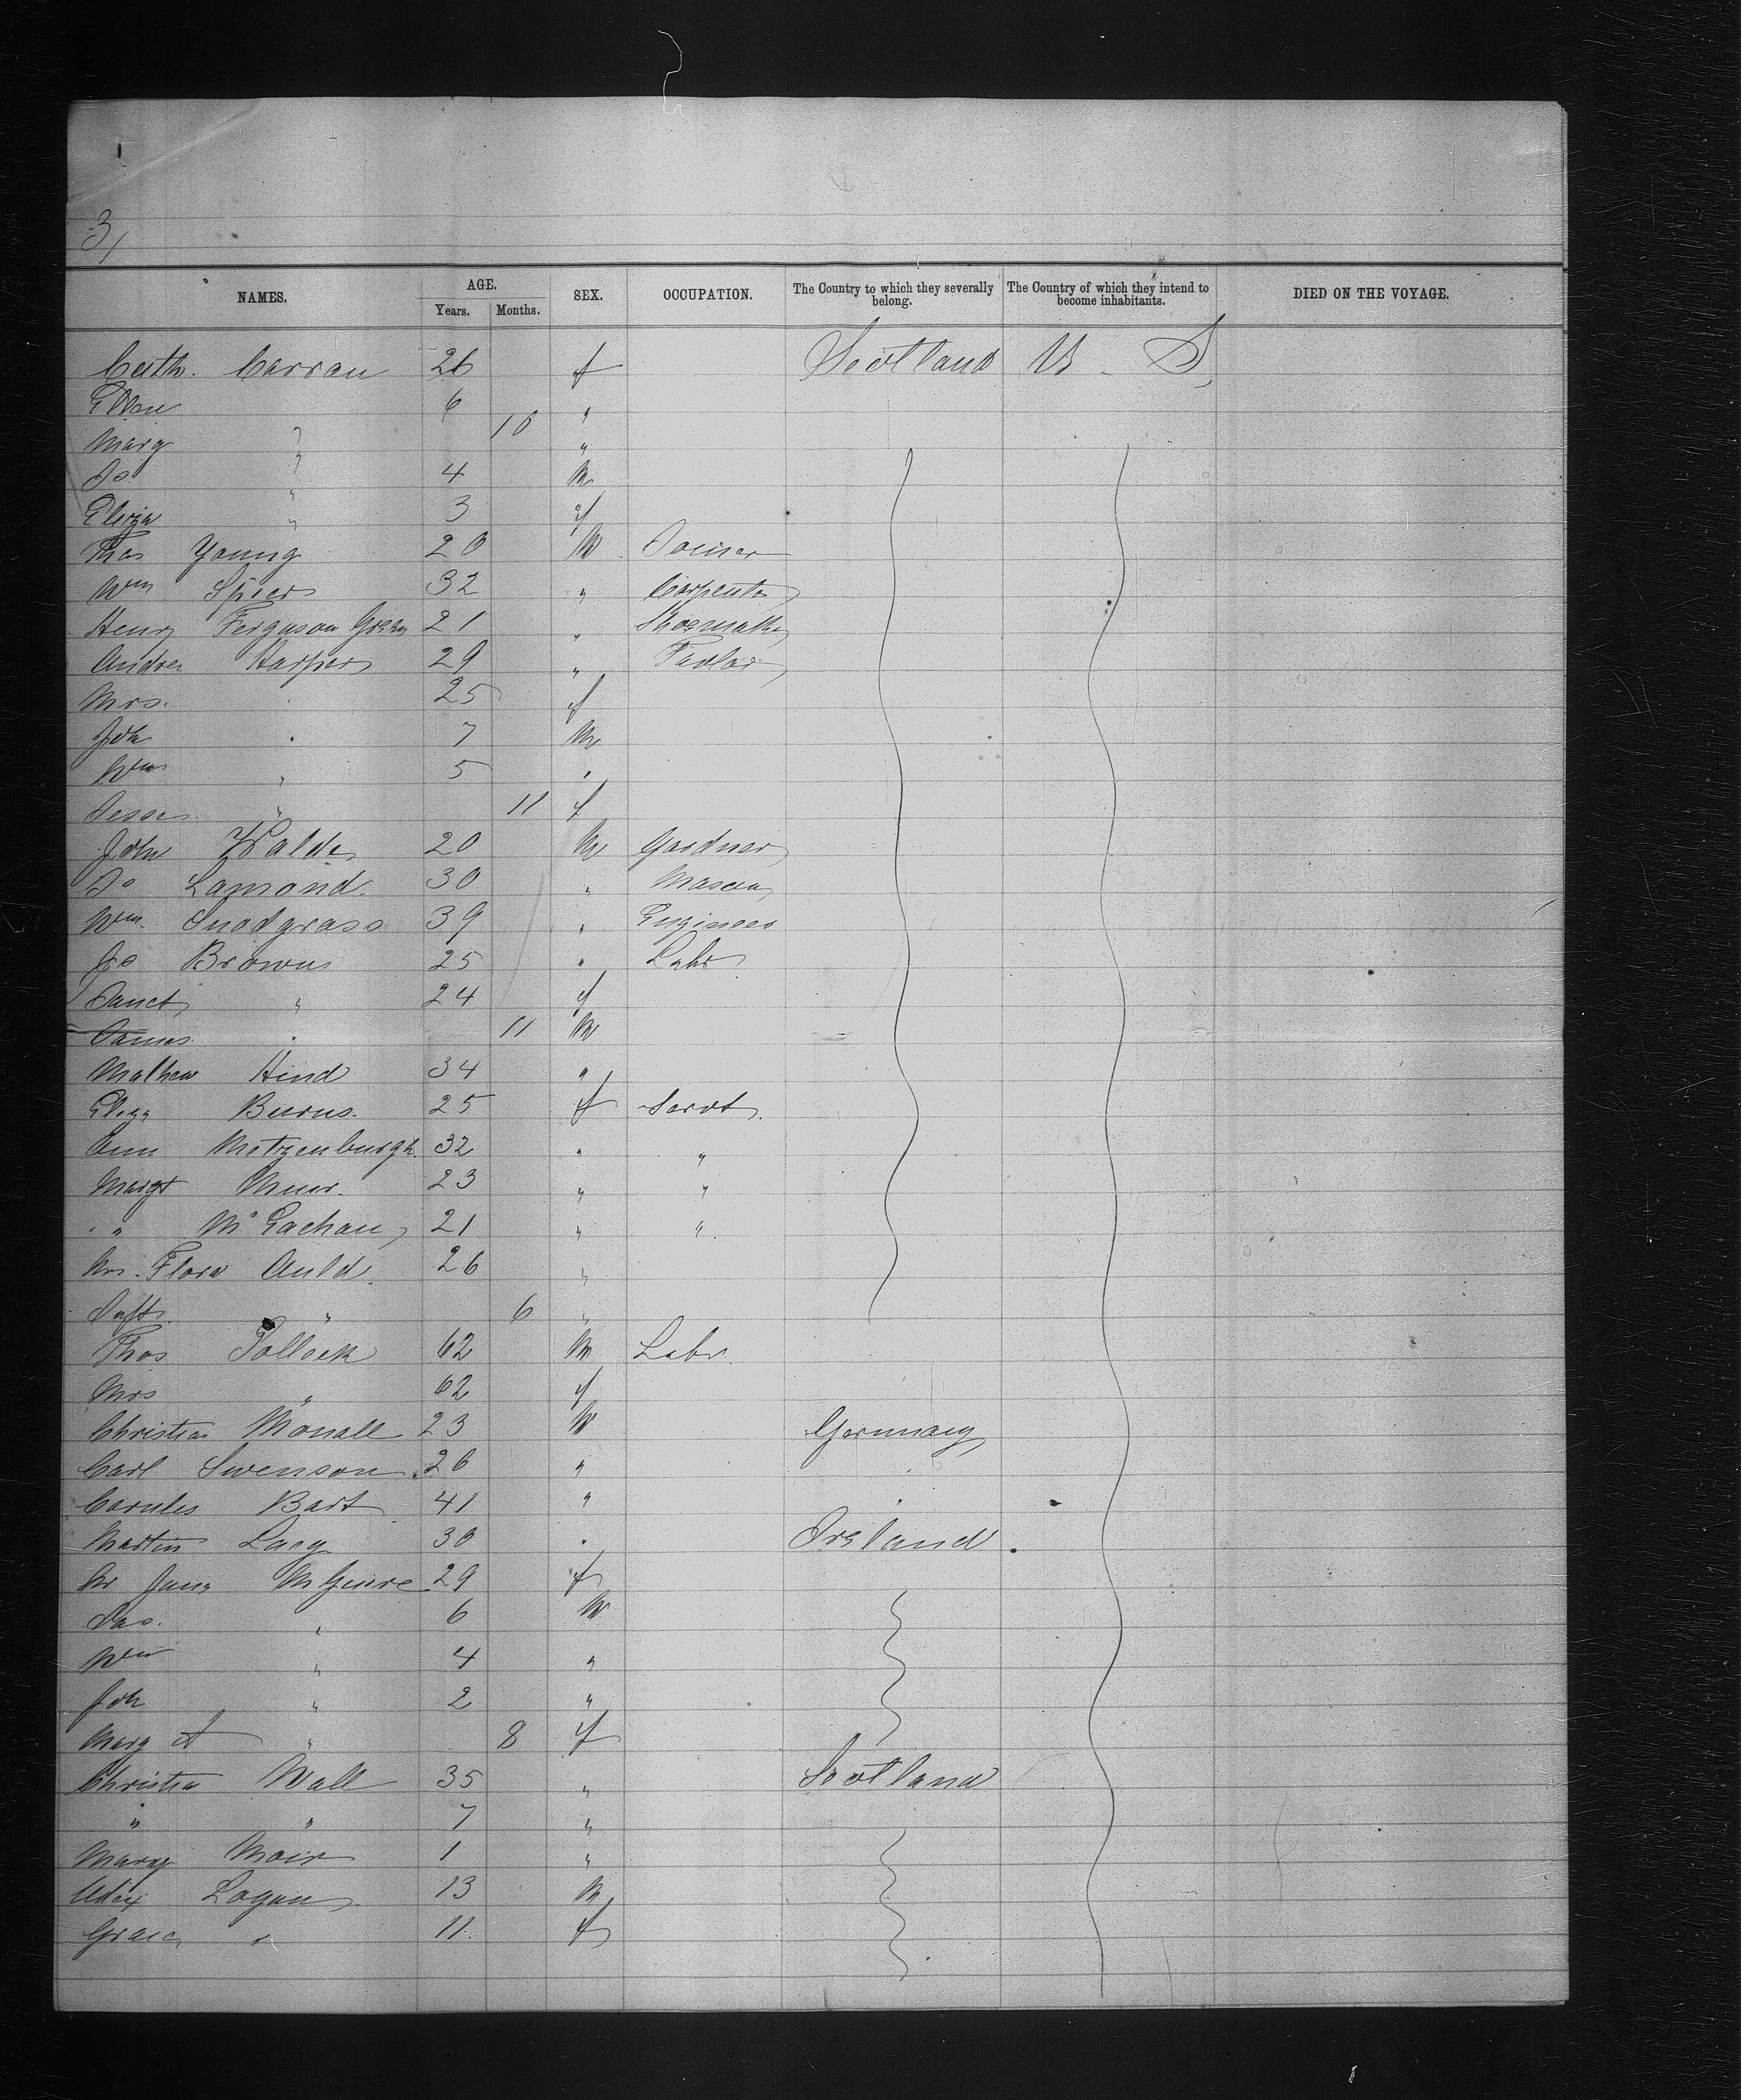 3/
NAMES. AGE. Years. Months. SEX. OCCUPATION. The Country to which they severally belong. The Country of which they intend to become inhabitants. DIED ON THE VOYAGE.
Cath. Carran 26 f Scotland U. S.
Ellen 6 "
Marg " 10 "
Jo " 4 M
Eliza " 3 f
Thos Young 20 M Joiner
Wm Spiers 32 " Carpenter
Henry Ferguson 21 " Shoemaker
Andrew Harper 29 " Tailor
Mrs. " 25 f
Joh " 7 M
Wm " 5 "
Jesse " 11 f
John 20 M Gardner
Jo Lamond 30 " Mason
Wm Snodgrass 39 " Engineer
Jo Brown 25 " Labr
Janet " 24 f
James " 11 M
Mathew Hind 34 "
Eliza Burns 25 f Servt
Ann Metzenburgh 32 " "
Margt Muir 23 " "
" McEachan 21 " "
Mrs. Flora Auld 26 "
Inft " 6 "
Thos Pollock 62 M Labr
Mrs " 62 f
Christian 23 M Germany
Carl Swenson 26 " "
Bart 41 " "
Martin 30 " Ireland
Jane McGuire 29 f
Jas. " 6 M
Wm " 4 "
Joh " 2 "
Marg A " 8 f
Christia Wall 35 " Scotland
" " 7 "
Mary Moir 1 "
Alex Logan 13 M
Grace " 11 f